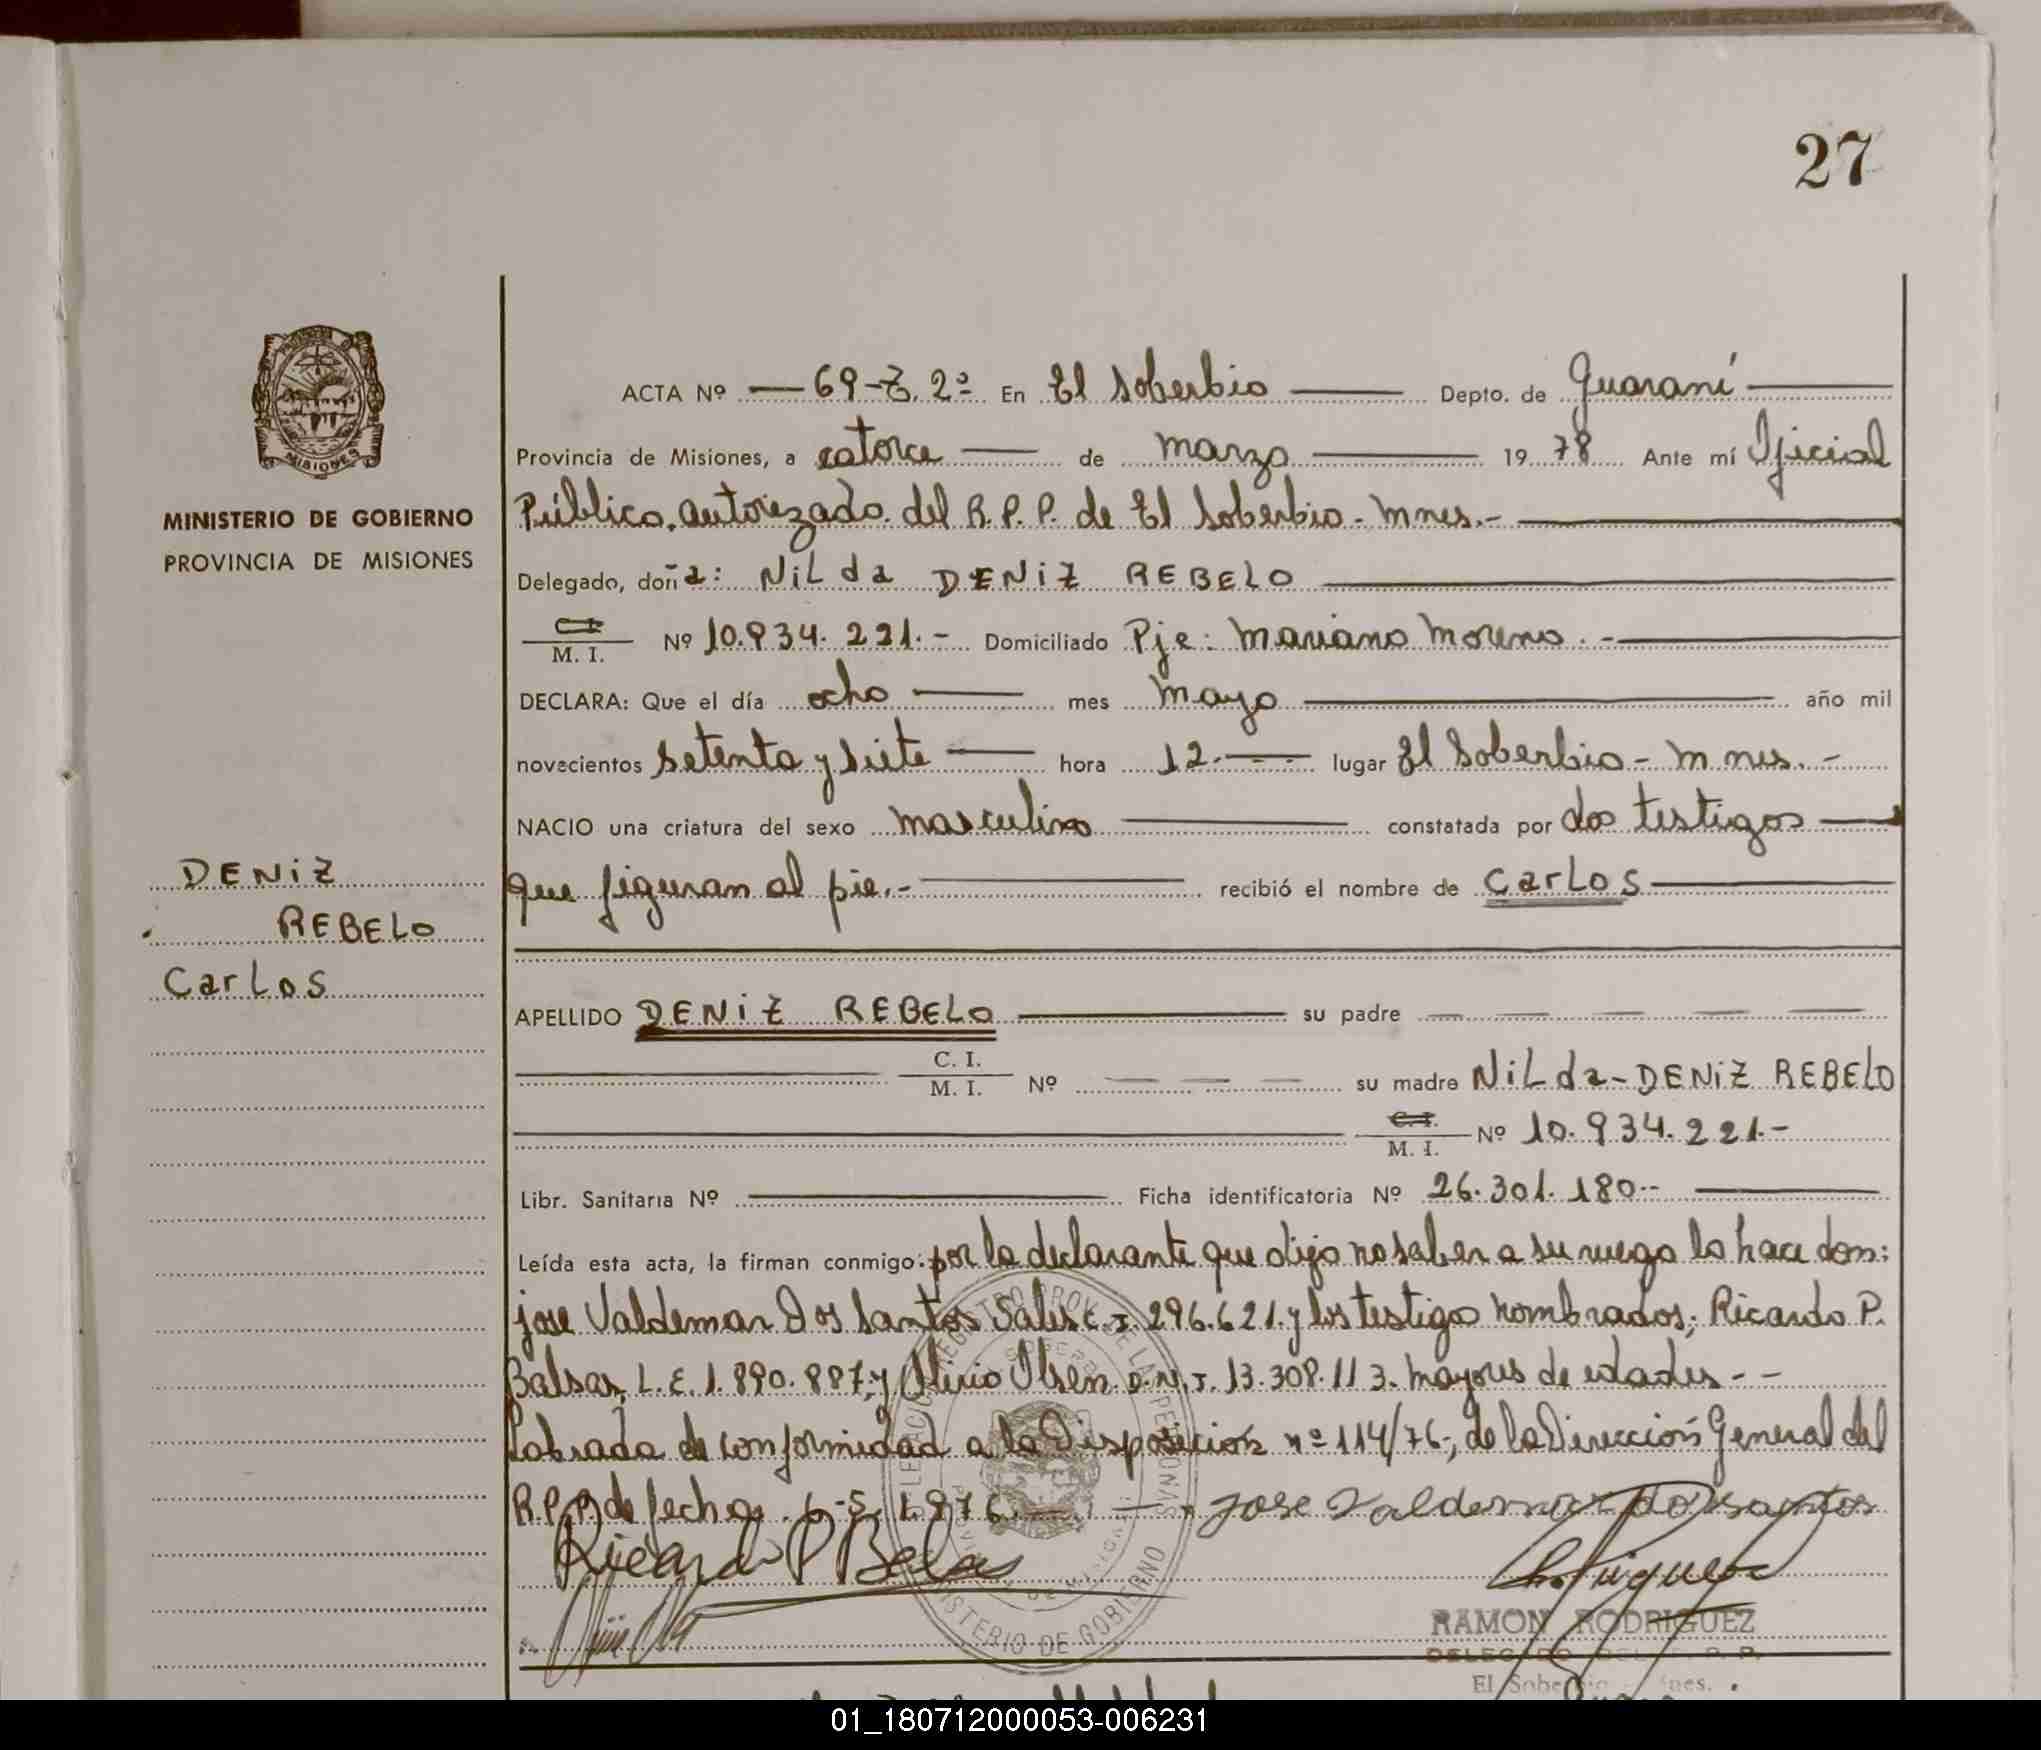 27
ACTA Nº — 69-Z. 2º En El Soberbio — Depto. de Guaraní —
Provincia de Misiones, a catorce — de marzo — 19 78 Ante mí Oficial
MINISTERIO DE GOBIERNO
PROVINCIA DE MISIONES
Público autorizado del R.P.P. de El Soberbio - Mnes.-
Delegado, doña: NiLda DENiZ REBELO
C. I. / M. I. Nº 10.934.221.- Domiciliado Pje: Mariano Moreno.-
DECLARA: Que el día ocho — mes mayo — año mil
novecientos setenta y siete — hora 12.— lugar El Soberbio - Mnes.-
NACIO una criatura del sexo masculino — constatada por dos testigos —
DENiZ
REBELO
CarLos
que figuran al pie.- — recibió el nombre de CarLos —
APELLIDO DENiZ REBELO — su padre — — — — —
C. I. / M. I. Nº — — — — su madre NiLda-DENiZ REBELO
C. I. / M. I. Nº 10.934.221.-
Libr. Sanitaria Nº — Ficha identificatoria Nº 26.301.180.- —
Leída esta acta, la firman conmigo: por la declarante que dijo no saber a su ruego lo hace don:
jose Valdemar Dos Santos Sales C.I. 296.621. y los testigos nombrados; Ricardo P.
Balsas, L.E. 1.890.887, y Olirio Olsen D.N.I. 13.308.113. Mayores de edades - -
Labrada de conformidad a la Disposición nº 114/76-, de la Dirección General del
R.P.P. de fecha 6-5-1.976.— Jose Valdemar do santos
Ricardo P Belsas
RAMON RODRIGUEZ
DELEGADO DEL R. P. P.
El Soberbio - Mnes.
MINISTERIO DE GOBIERNO
01_180712000053-006231